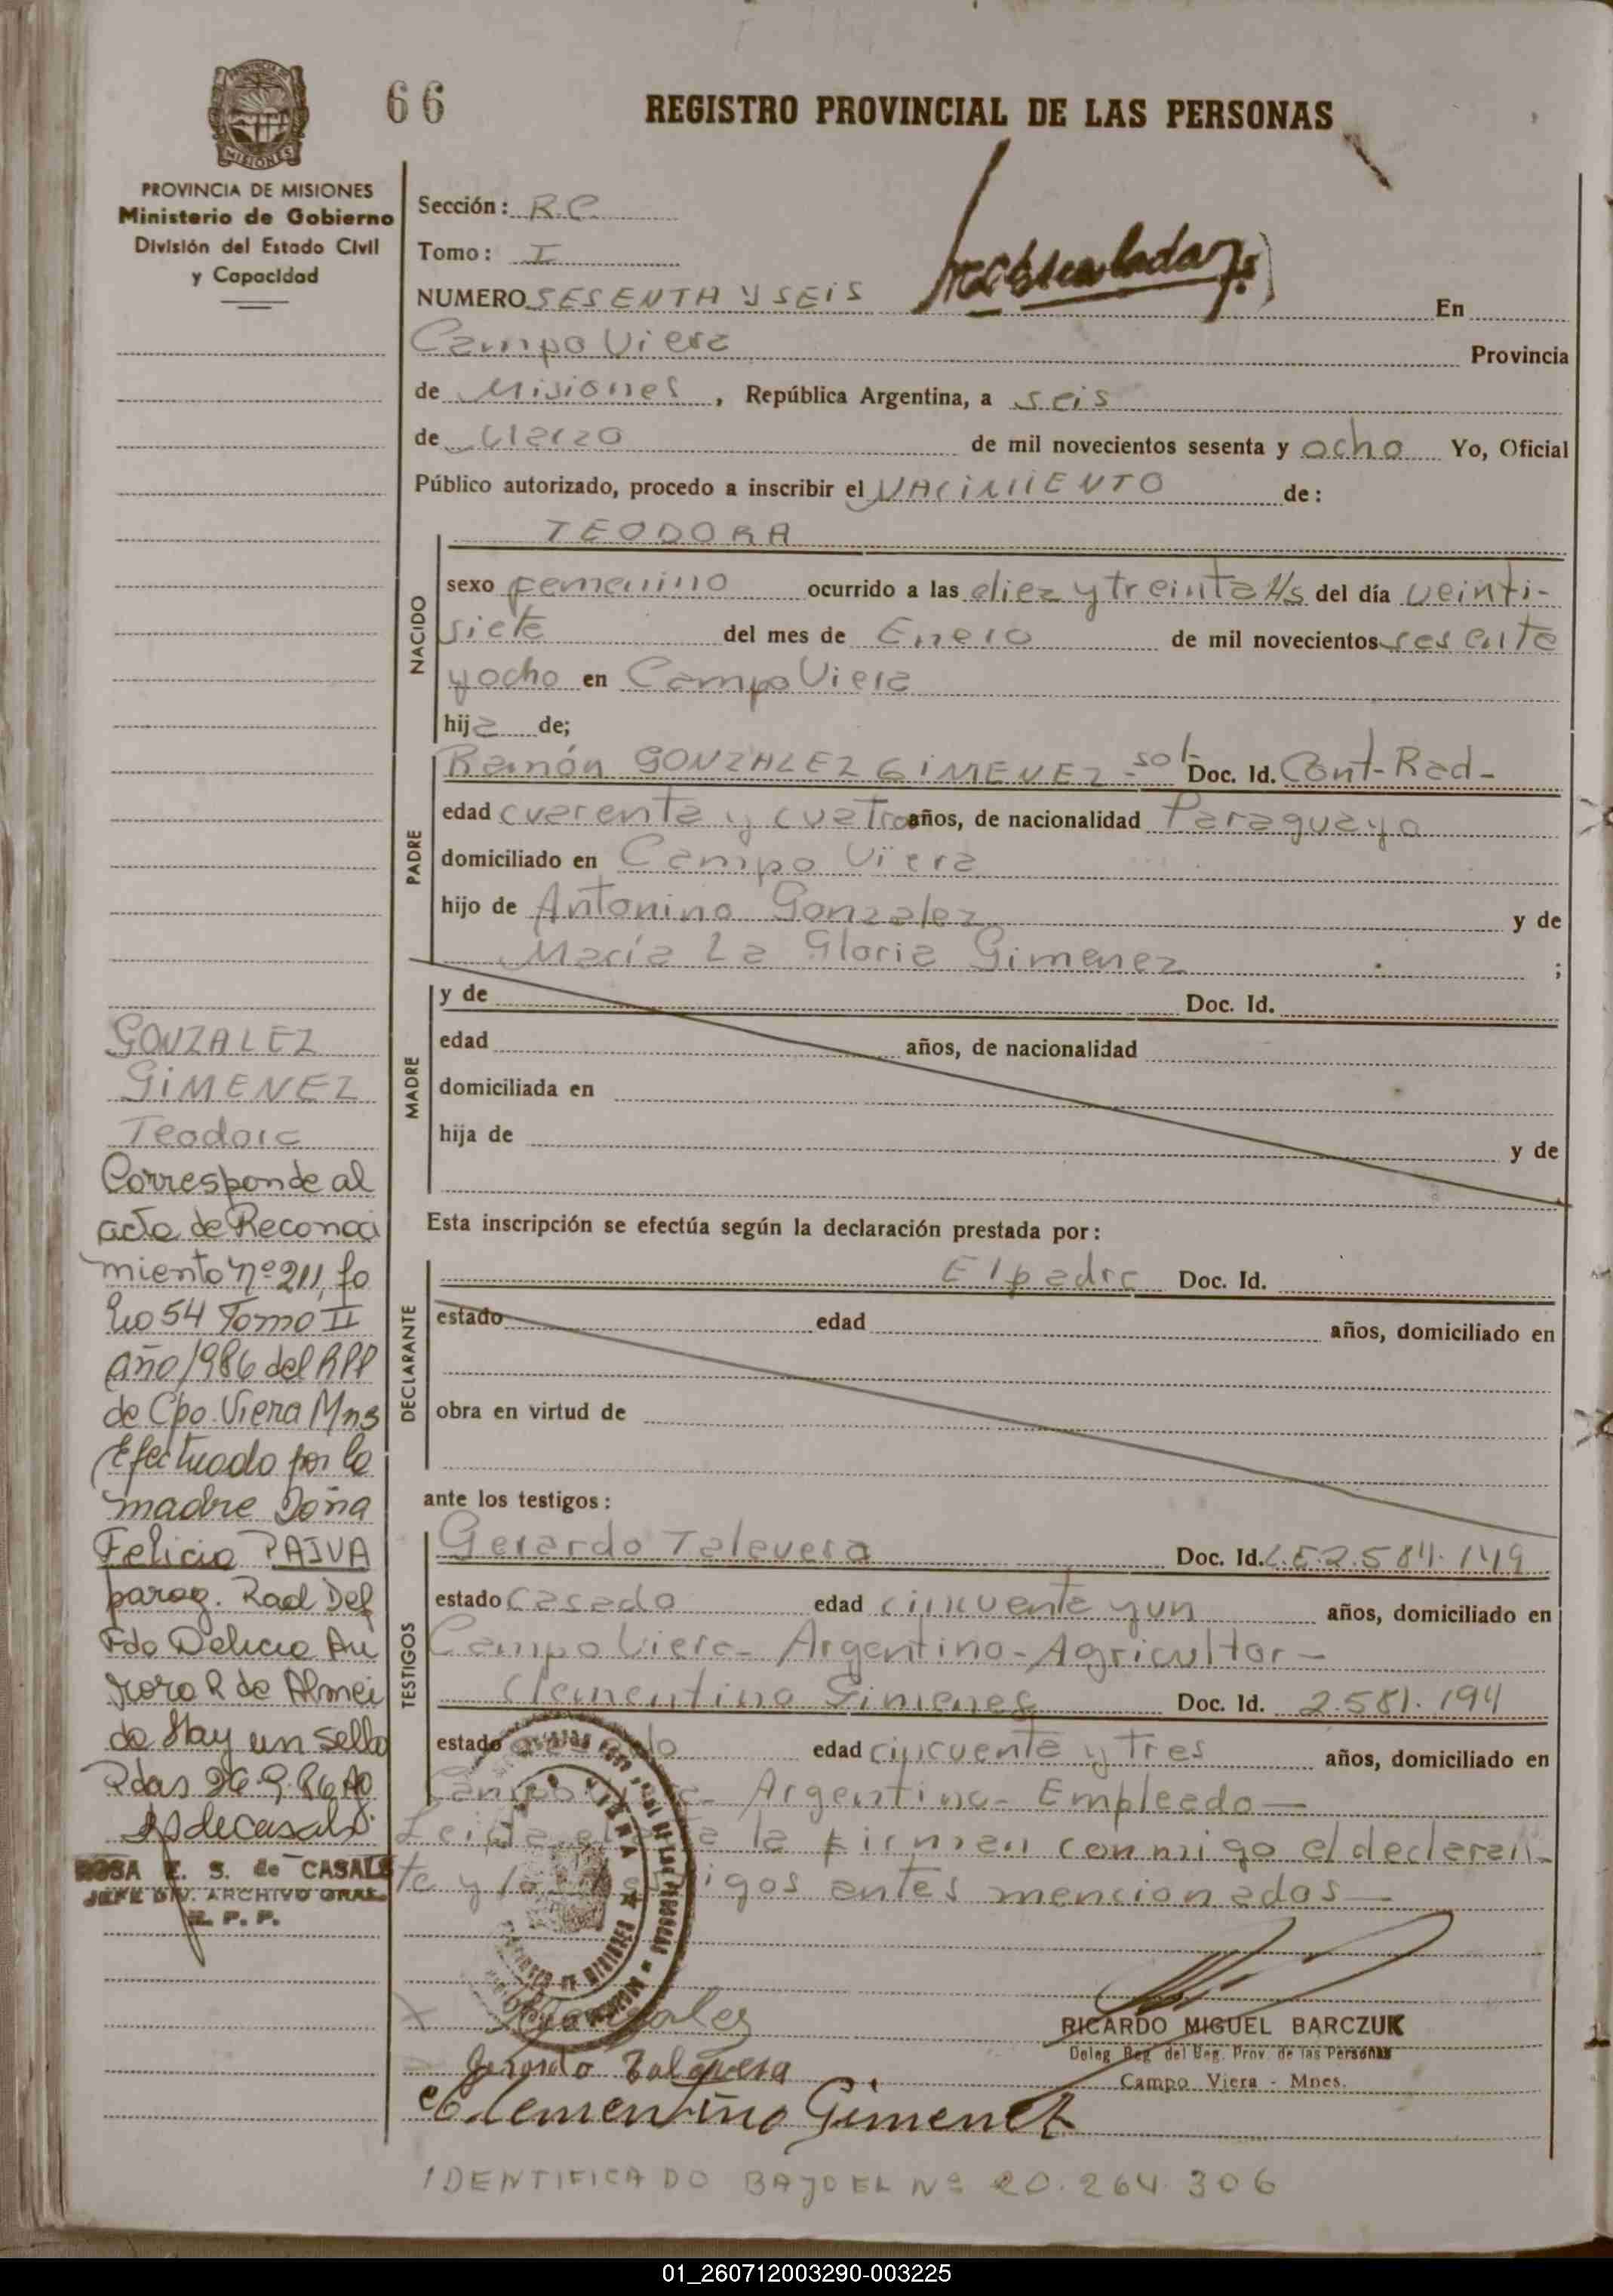 66
REGISTRO PROVINCIAL DE LAS PERSONAS
PROVINCIA DE MISIONES
MISIONES
PROVINCIA DE MISIONES
Ministerio de Gobierno
División del Estado Civil
y Capacidad
Sección: R.C.
Tomo: I
NUMERO SESENTA Y SEIS En
Campo Viera Provincia
de Misiones, República Argentina, a seis
de Marzo de mil novecientos sesenta y ocho Yo, Oficial
Público autorizado, procedo a inscribir el NACIMIENTO de:
TEODORA
NACIDO
sexo femenino ocurrido a las diez y treinta Hs del día veinti-
siete del mes de Enero de mil novecientos sesenta
y ocho en Campo Viera
hija de;
PADRE
Ramón GONZALEZ GIMENEZ - sol- Doc. Id. Cont-Rad-
edad cuarenta y cuatro años, de nacionalidad Paraguayo
domiciliado en Campo Viera
hijo de Antonino Gonzalez y de
María La Gloria Gimenez ;
MADRE
y de Doc. Id.
edad años, de nacionalidad
domiciliada en
hija de y de
Esta inscripción se efectúa según la declaración prestada por:
DECLARANTE
El padre Doc. Id.
estado edad años, domiciliado en
obra en virtud de
ante los testigos:
TESTIGOS
Gerardo Talavera Doc. Id. L.E. 2.584.149
estado Casado edad cincuenta y un años, domiciliado en
Campo Viera- Argentino- Agricultor-
Clementino Gimenez Doc. Id. 2.581.194
estado edad cincuenta y tres años, domiciliado en
Argentino- Empleado-
Leida el la firman conmigo el declaran-
te y los testigos antes mencionados-
GONZALEZ
GIMENEZ
Teodora
Corresponde al
acta de Reconoci
miento nº 211, fo
lio 54 Tomo II
año 1986 del RPP
de Cpo. Viera Mns
Efectuado por la
madre Doña
Felicia PAIVA
parag. Rad Def
Fdo Delicia Au
rora R de Almei
da Hay un sello
Pdas 26.9.86
ROSA E. S. de CASALS
JEFE DIV. ARCHIVO GRAL.
R. P. P.
Gonzales
RICARDO MIGUEL BARCZUK
Deleg. Reg. del Reg. Prov. de las Personas
Gerardo Talavera
Campo Viera - Mnes.
Clementino Gimenez
IDENTIFICADO BAJO EL Nº 20.264.306
01_260712003290-003225